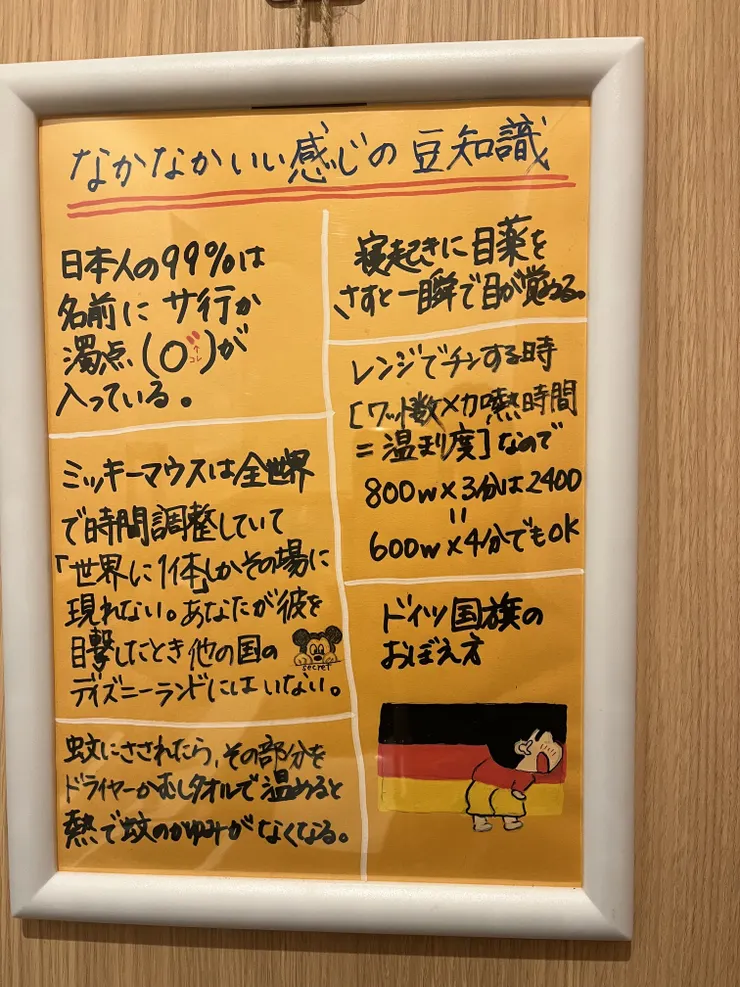 なかなかいい感じの豆知識
日本人の99%は
名前にサ行か
濁点(〇゛)が
←コレ
入っている。
ミッキーマウスは全世界
で時間調整していて
「世界に1体」しかその場に
現れない。あなたが彼を
目撃したとき他の国の
secret
ディズニーランドにはいない。
蚊にさされたら、その部分を
ドライヤーかむしタオルで温めると
熱で蚊のかゆみがなくなる。
寝起きに目薬を
さすと一瞬で目が覚める。
レンジでチンする時
[ワット数×加熱時間
=温まり度]なので
800w×3分は2400
=
600w×4分でもOK
ドイツ国旗の
おぼえ方